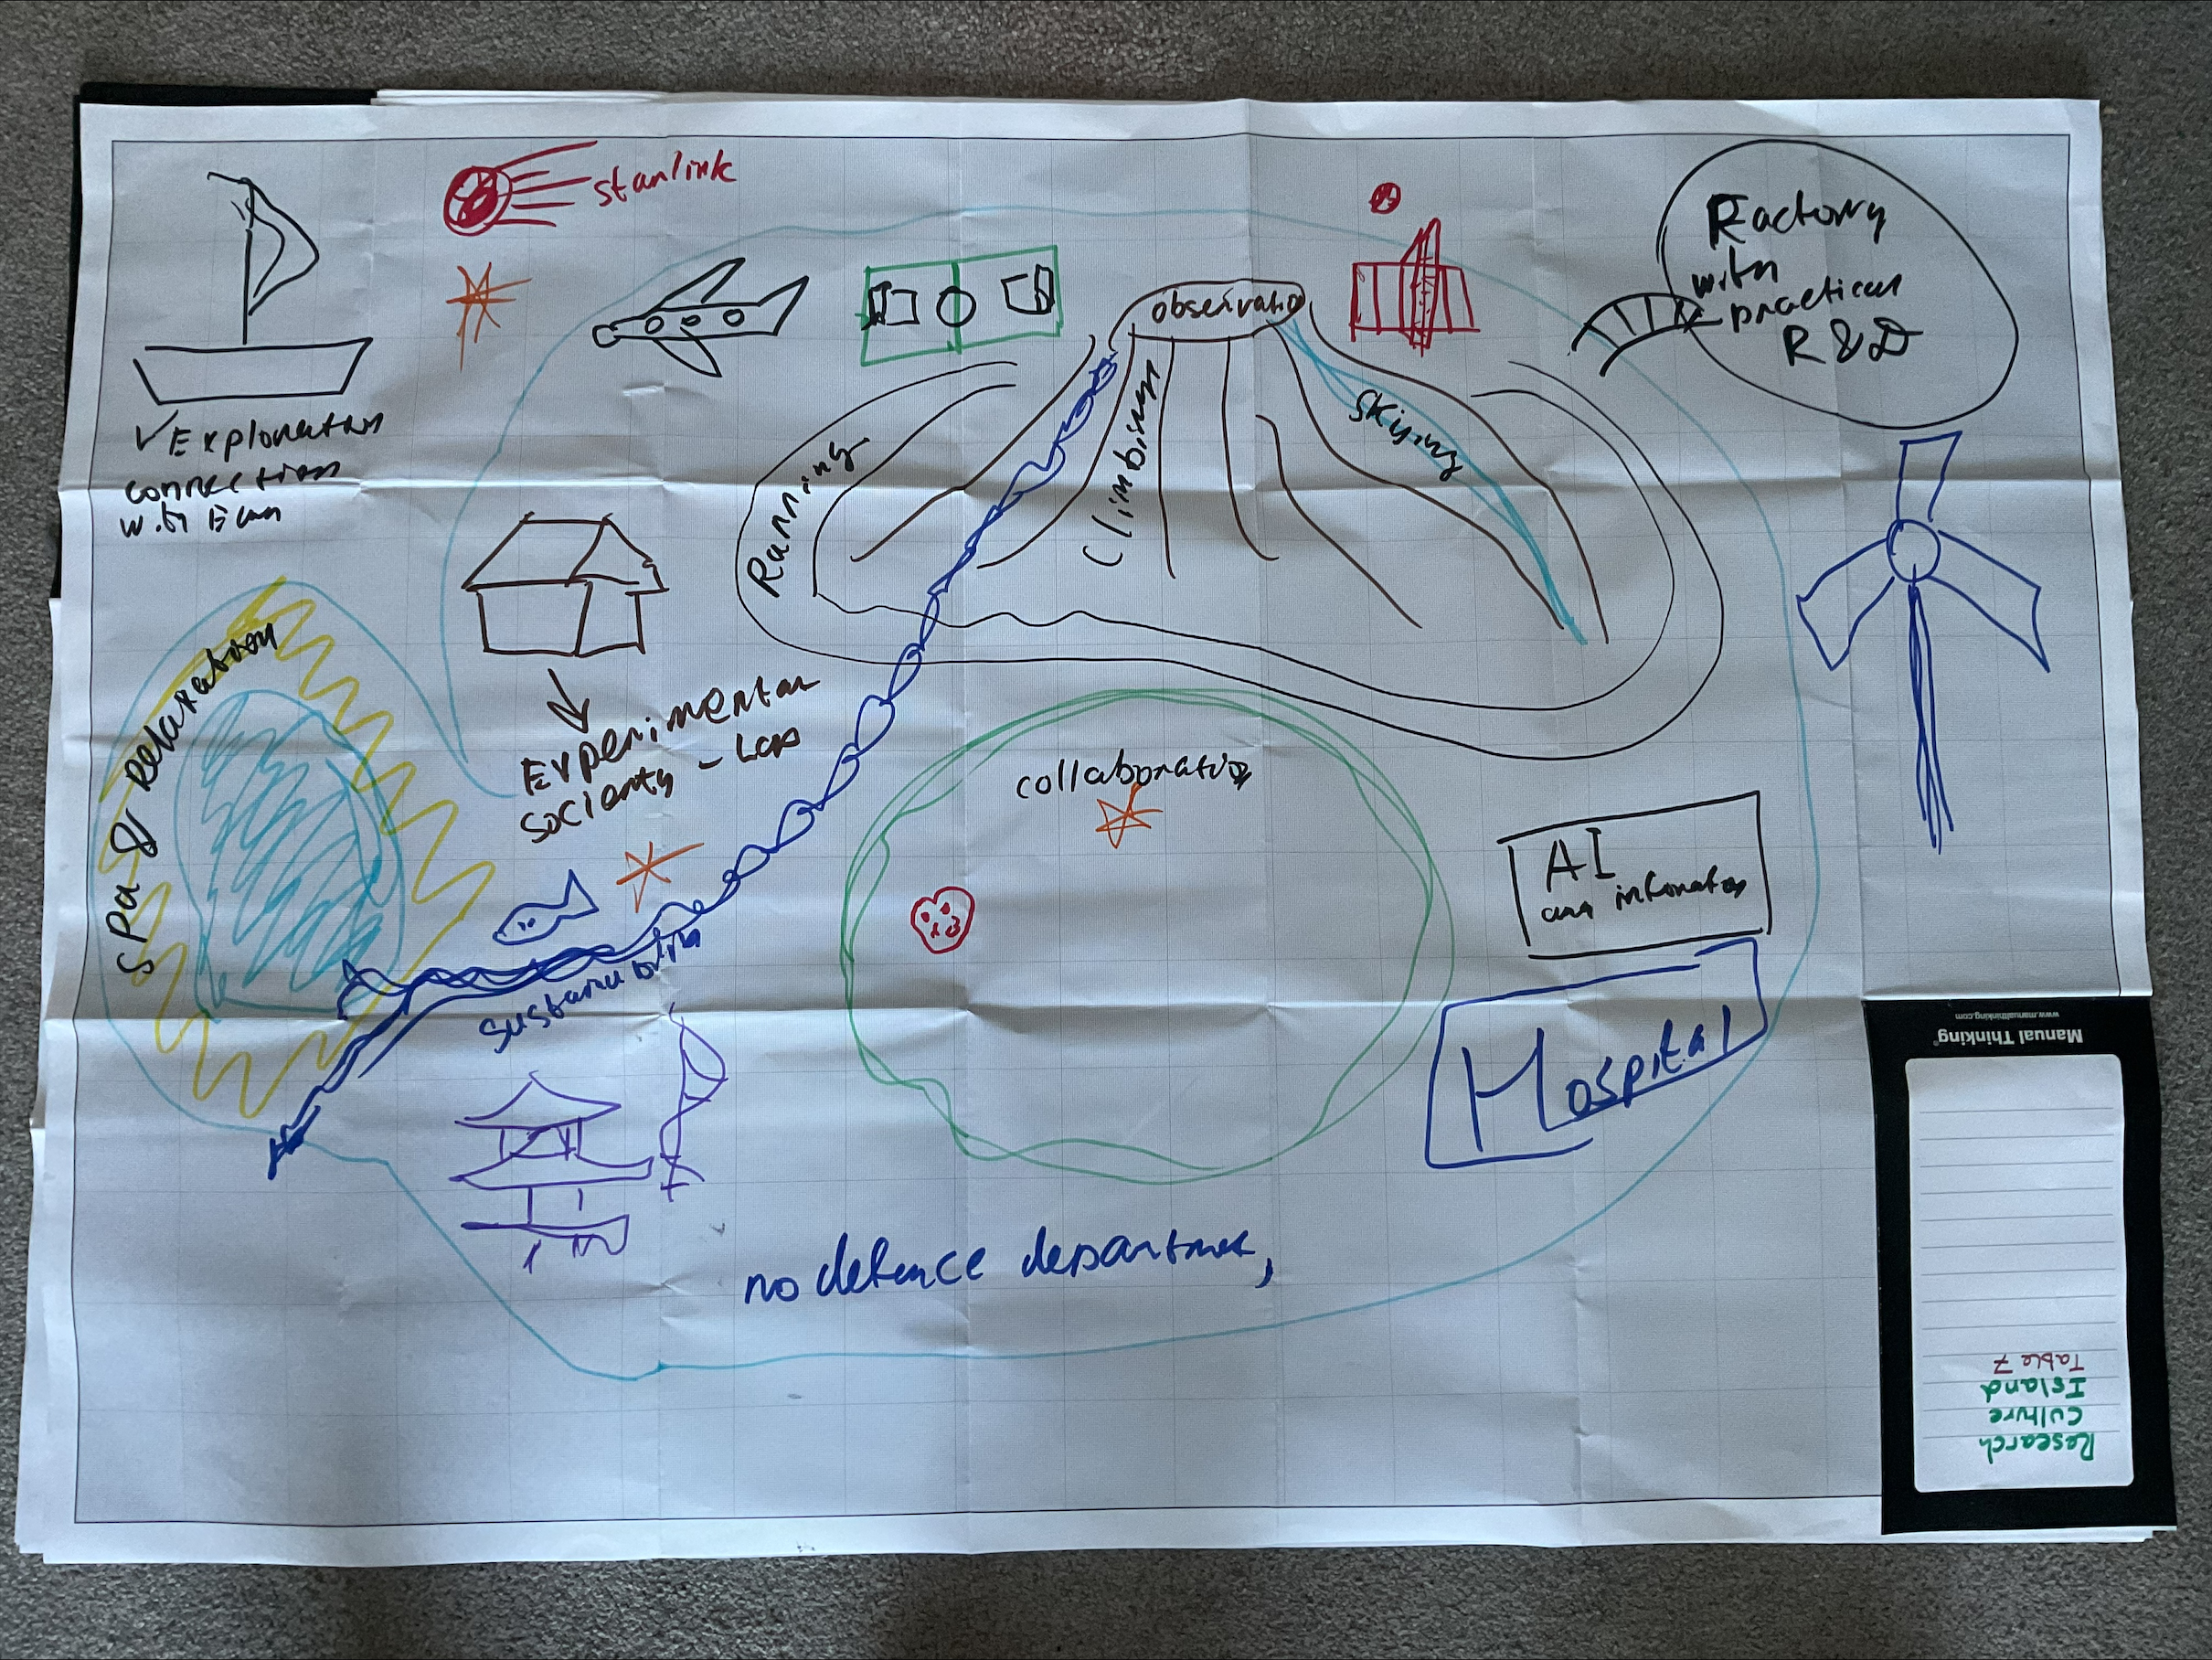 starlink
observatio
Factory
with
practical
R & D
✓ Exploration
connection
with
Running
Climbing
Skiing
Spa & relaxation
Experimental
society - Lab
collaboration
AI
and
sustainabili
Hospital
no defence department,
Manual Thinking®
www.manualthinking.com
Research
Culture
Island
Table 7